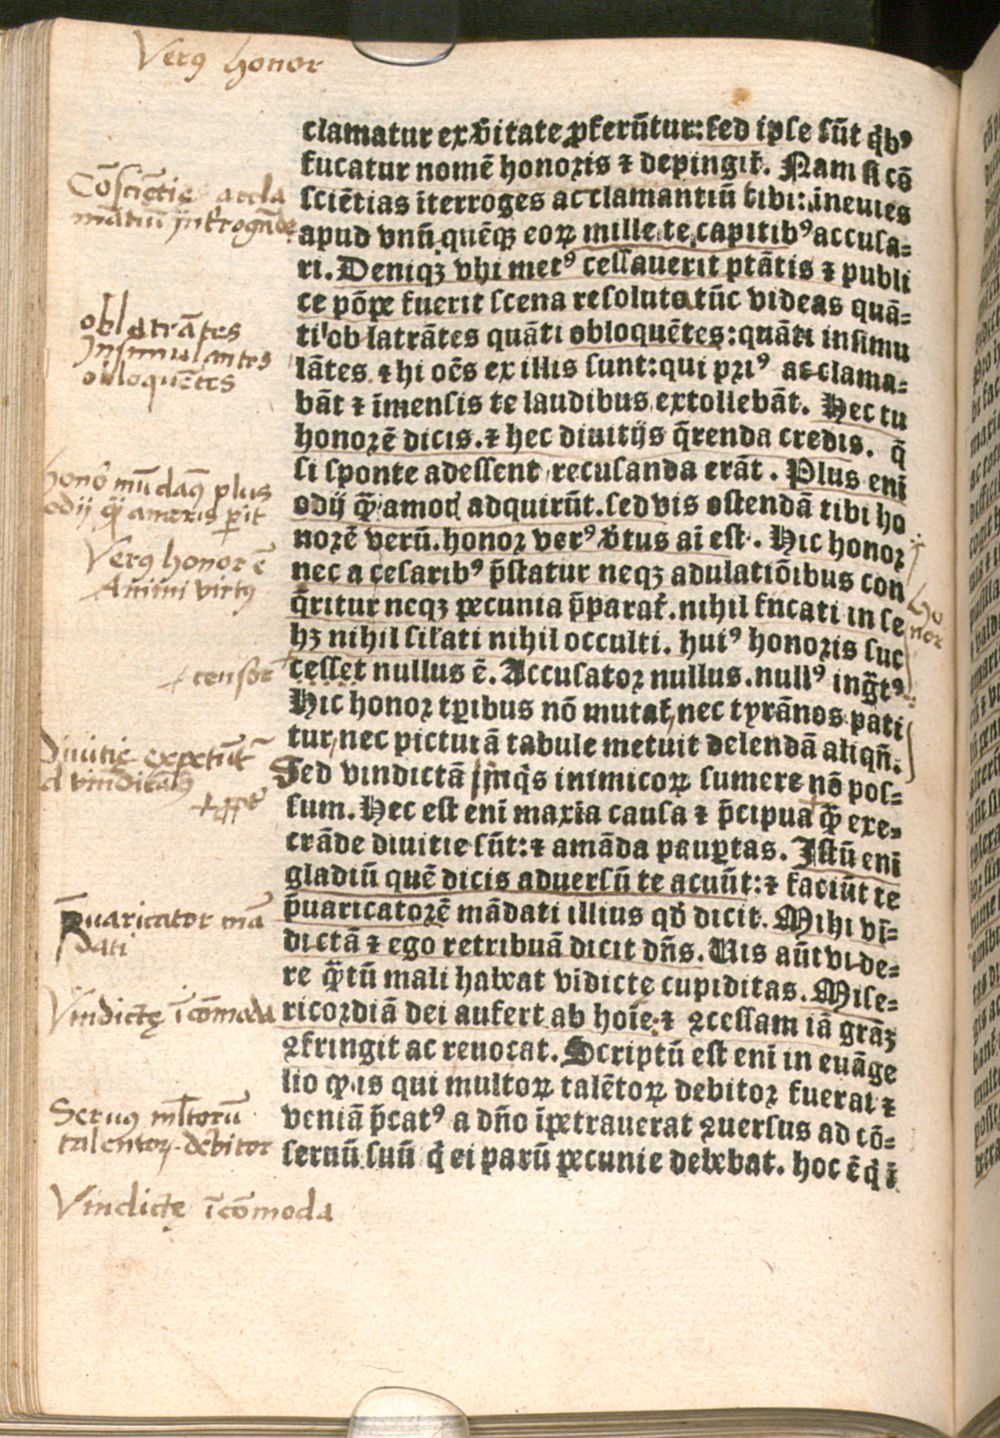 Verꝰ honor
clamatur ex v̓itate ꝓferūtur: sed ipse sūt q̇bꝰ
fucatur nomē honoris ⁊ depingit᷑. Nam si cō
sciētias īterroges acclamantiū tibi: inenies
apud vnū quēqꝫ eoꝝ mille te capitibꝰ accusa-
ri. Deniqꝫ vbi metꝰ cessauerit ptātis ⁊ publi
ce pōpe fuerit scena resoluta tūc videas quā-
ti ob latrātes quāti obloquētes: quāti insimu
lātes ⁊ hi oēs ex illis sunt: qui priꝰ acclama-
bāt ⁊ īmensis te laudibus extollebāt. Hec tu
honorē dicis. ⁊ hec diuitijs q̄renda credis. q̄
si sponte adessent recusanda erāt. Plus enī
odij ꝙ̄ amoris adquirūt. sed vis ostendā tibi ho
norē verū. honor verꝰ v̓tus ai est. Hic honor
nec a cesaribꝰ p̄statur neqꝫ adulatiōibus con
q̄ritur neqꝫ pecunia p̄parat᷑. nihil fucati in se
hꝫ nihil sil̓ati nihil occulti. huiꝰ honoris suc
cesset nullus ē. Accusator nullus. nullꝰ ing̃tꝰ
Hic honor tp̱ibus nō mutat᷑, nec tyrānos pati
tur, nec picturā tabule metuit delendā aliqn̄.
Sed vindictā inqͥs inimicoꝝ sumere nō pos-
sum. Hec est enī maxīa causa ⁊ p̄cipua ꝙ̄ exe-
crāde diuitie sūt: ⁊ amāda paup̱tas. Istū enī
gladiū quē dicis aduersū te acuūt: ⁊ faciūt te
p̄uaricatorē mādati illius qd̓ dicit. Mihi vī-
dictā ⁊ ego retribuā dicit dn̄s. Uis aūt vide-
re qͣ̄tū mali habeat vīdicte cupiditas. Mise-
ricordiā dei aufert ab hoīe ⁊ ꝯcessam iā gr̄aꝫ
ꝯfringit ac reuocat. Scriptū est enī in euāge
lio ꝙ is qui multoꝝ talētoꝝ debitor fuerat ⁊
veniā p̄catꝰ a dn̄o īpetrauerat ꝯuersus ad cō-
seruū suū q̇ ei parū pecunie debebat. hoc ē q̇ ī
Cōsciētię accla
mātiū īnt̓rogādę
oblatrātes
Insimulantes
obloquētes
honō mūdaꝰ plus
odij ꝙ̄ amoris p̱it
Verꝰ honor ē
Animi virtꝰ
censor
Diuitię expetūt᷑
Pruaricator mā
dati
Vindictę īcōmoda
Seruꝰ ml̓torū
talentoꝝ debitor
Vindictę īcōmoda
Ho
nor